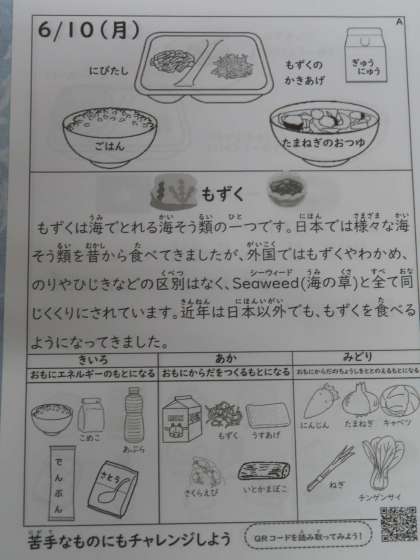 6/10(月)
A
にびたし
もずくの
かきあげ
ぎゅう
にゅう
ごはん
たまねぎのおつゆ
もずく
もずくは海でとれる海そう類の一つです。日本では様々な海
そう類を昔から食べてきましたが、外国ではもずくやわかめ、
のりやひじきなどの区別はなく、Seaweed(海の草)と全て同
じくくりにされています。近年は日本以外でも、もずくを食べる
ようになってきました。
きいろ
あか
みどり
おもにエネルギーのもとになる
おもにからだをつくるもとになる
おもにからだのちょうしをととのえるもとになる
こめこ
あぶら
でんぷん
さとう
もずく
うすあげ
さくらえび
いとかまぼこ
にんじん
たまねぎ
キャベツ
ねぎ
チンゲンサイ
苦手なものにもチャレンジしよう
QRコードを読み取ってみよう!